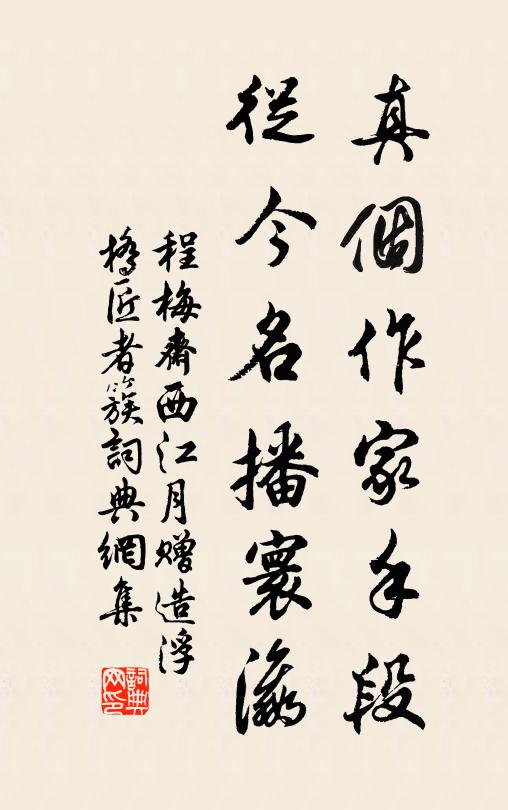 真個作家手段
從今名播寰瀛
程梅齋西江月贈造浮
橋匠者簇詞典網集
詞典
网印